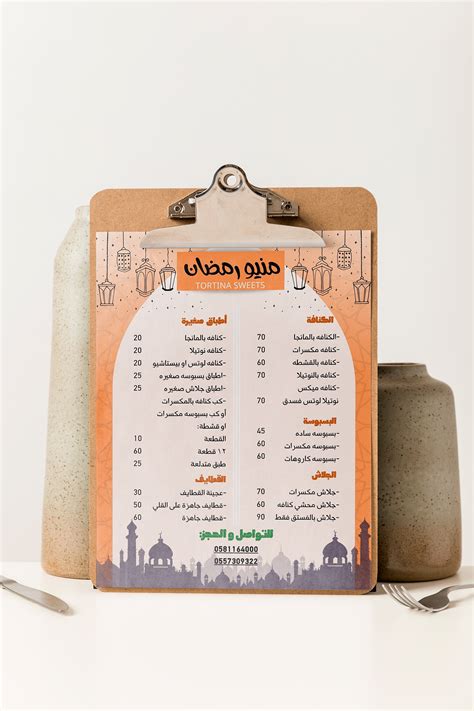 منيو رمضان
TORTINA SWEETS
الكنافة
-الكنافه بالمانجا 70
-كنافه مكسرات 70
-كنافه بالقشطه 60
-كنافه بالنوتيلا 70
-كنافه ميكس
نوتيلا لوتس فسدق 70
البسبوسة
-بسبوسه ساده 45
-بسبوسه مكسرات 60
-بسبوسه كاروهات 60
الجلاش
-جلاش مكسرات 70
-جلاش محشي كنافه 60
-جلاش بالفستق فقط 90
أطباق صغيرة
-كنافه بالمانجا 20
-كنافه نوتيلا 20
-كنافه لوتس او بيستاشيو 20
-اطباق بسبوسه صغيره 25
-اطباق جلاش صغيره 25
-كب كنافه بالمكسرات
أو كب بسبوسه مكسرات
او قشطة:
القطعة 10
١٢ قطعة 60
طبق متدلعة 25
القطايف
-عجينة القطايف 30
-قطايف جاهزة على القلي 50
-قطايف جاهزة 60
للتواصل و الحجز:
0581164000
0557309322